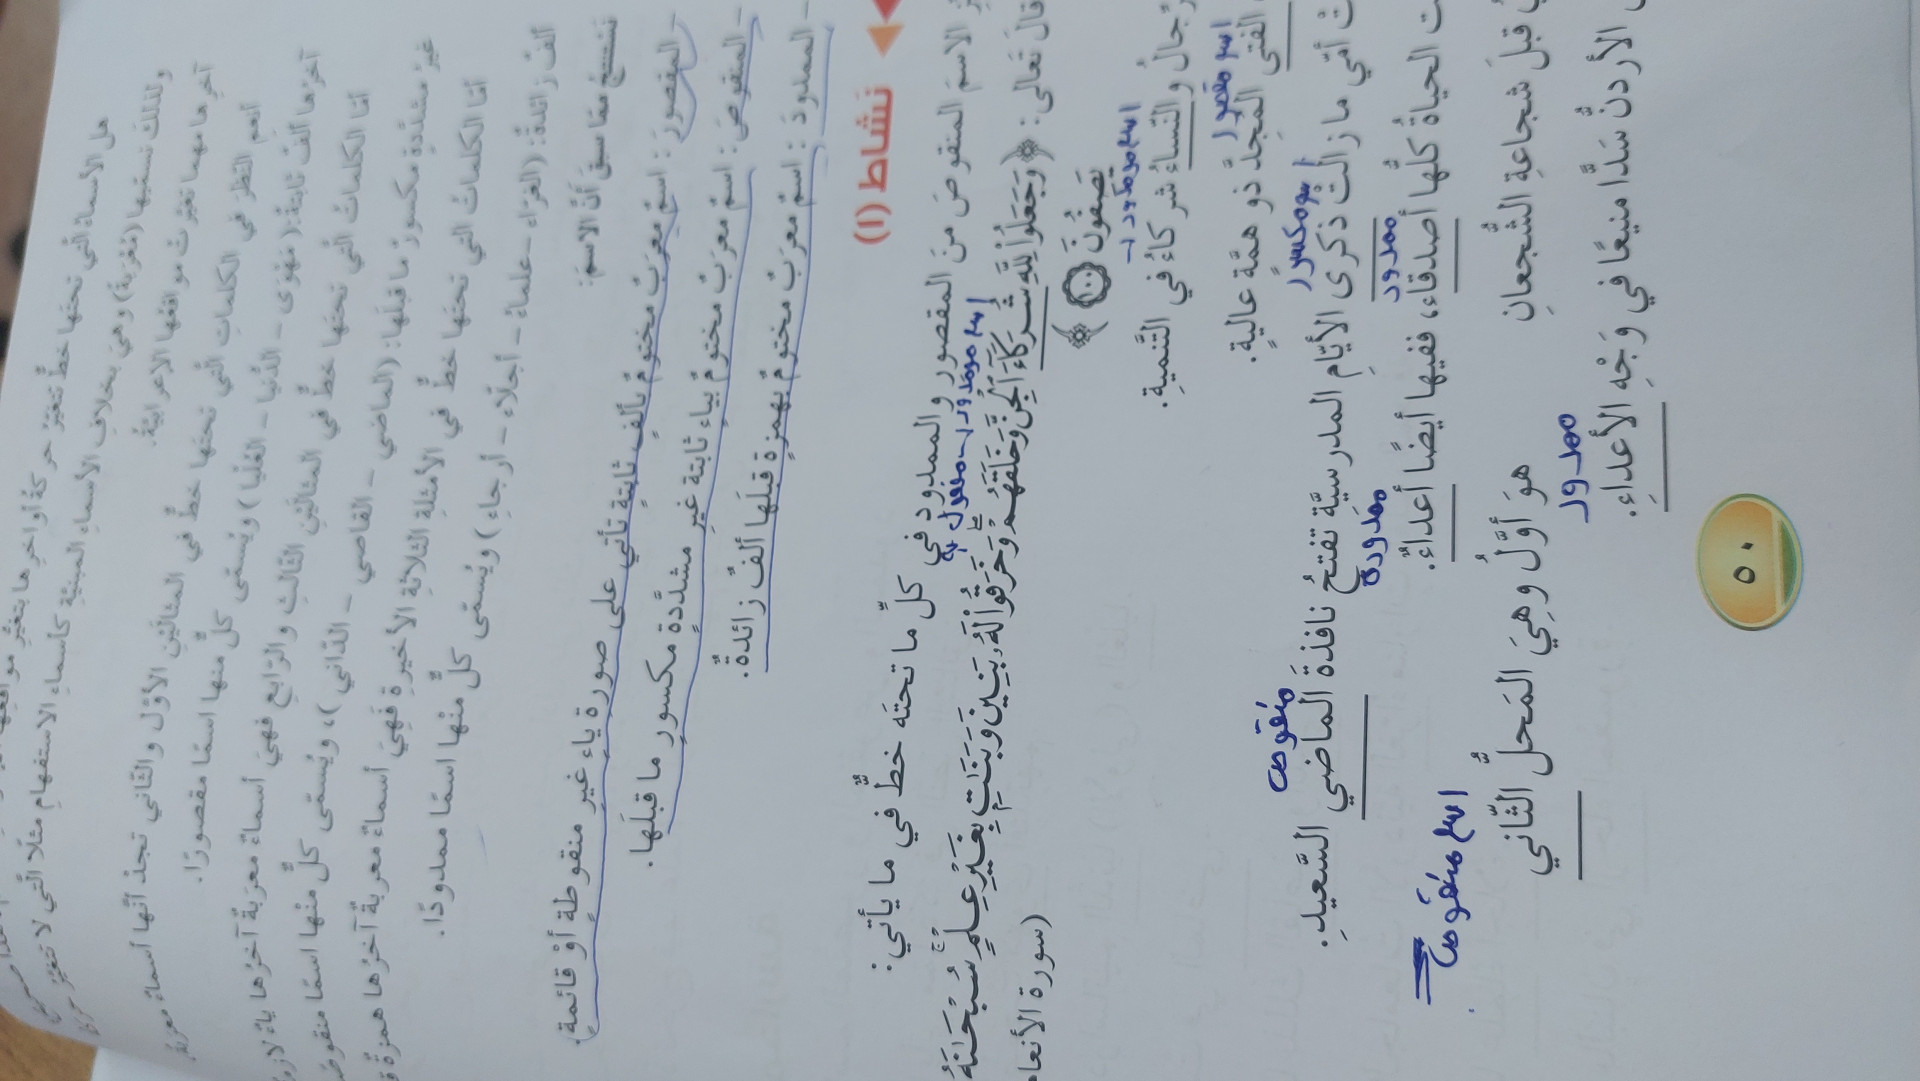 هل الأسماءُ الّتي تحتَها خطٌّ تتغيّرُ حركةُ أواخرِها بتغيُّرِ
ولذلكَ نسمّيها (مُعْرَبة) وهيَ بخلافِ الأسماءِ المبنيّةِ كأسماءِ الاستفهامِ مثلًا الّتي لا تتغيّرُ
آخرِها مهما تغيّرتْ مواقعُها الإعرابيّةُ.
أنعمِ النّظرَ في الكلماتِ الّتي تحتَها خطٌّ في المثالَينِ الأوّلِ والثّاني تجدْ أنّها أسماءٌ معربةٌ
آخرُها ألفٌ ثابتةٌ: (مَهْوَى – الدُّنيا – العُلْيا) ويُسمّى كلٌّ منها اسمًا مقصورًا.
أمّا الكلماتُ الّتي تحتَها خطٌّ في المثالَينِ الثّالثِ والرّابعِ فهيَ أسماءٌ معربَةٌ آخرُها ياءٌ
غيرُ مشدَّدةٍ مكسورٌ ما قبلَها: (الماضي – القاصي – الدّاني)، ويُسمّى كلٌّ منْها اسمًا
أمّا الكلماتُ الّتي تحتَها خطٌّ في الأمثلةِ الثلاثةِ الأخيرةِ فَهِيَ أسماءٌ معربةٌ آخرُها همزةٌ
ألفٌ زائدةٌ: (العزّاء – علماءُ – أجلّاء – أرجاءِ) ويُسمّى كلٌّ منْها اسمًا ممدودًا.
نستنتجُ ممّا سبقَ أنَّ الاسمَ:
– المقصورَ: اسمٌ معربٌ مختومٌ بألفٍ ثابتةٍ تأتي على صورةِ ياءٍ غيرِ منقوطةٍ أوْ قائمةٍ.
– المنقوصَ: اسمٌ معربٌ مختومٌ بياءٍ ثابتةٍ غيرِ مشدَّدةٍ مكسورٍ ما قبلَها.
– الممدودَ: اسمٌ معربٌ مختومٌ بهمزةٍ قبلَها ألفٌ زائدةٌ.
نشاط (١)
الاسمَ المنقوصَ منَ المقصورِ والممدودِ في كلِّ ما تحتَه خطٌّ في ما يأتي:
اسم ممدود – مفعول به
قالَ تعالى: ﴿وَجَعَلُوا لِلَّهِ شُرَكَاءَ الْجِنَّ وَخَلَقَهُمْ وَخَرَقُوا لَهُ بَنِينَ وَبَنَاتٍ بِغَيْرِ عِلْمٍ سُبْحَانَهُ
يَصِفُونَ ١٠٠﴾
(سورة الأنعام
اسم ممدود
والنّساءُ شركاءُ في التّنميةِ.
اسم مقصور
الفتى المجدُّ ذو همّةٍ عاليةٍ.
منقوص
أمّي ما زالتْ ذكرى الأيّامِ المدرسيّةِ تفتحُ نافذةَ الماضي السَّعيدِ.
ممدود
ممدودة
الحياةُ كلُّها أصدقاء، ففيها أيضًا أعداءٌ.
اسم منقوص
قبلَ شجاعةِ الشُّجعانِ
هوَ أوَّلٌ وهِيَ المَحلُّ الثّاني
ممدود
الأردنُّ سَدًّا منيعًا في وَجْهِ الأعداءِ.
٥٠